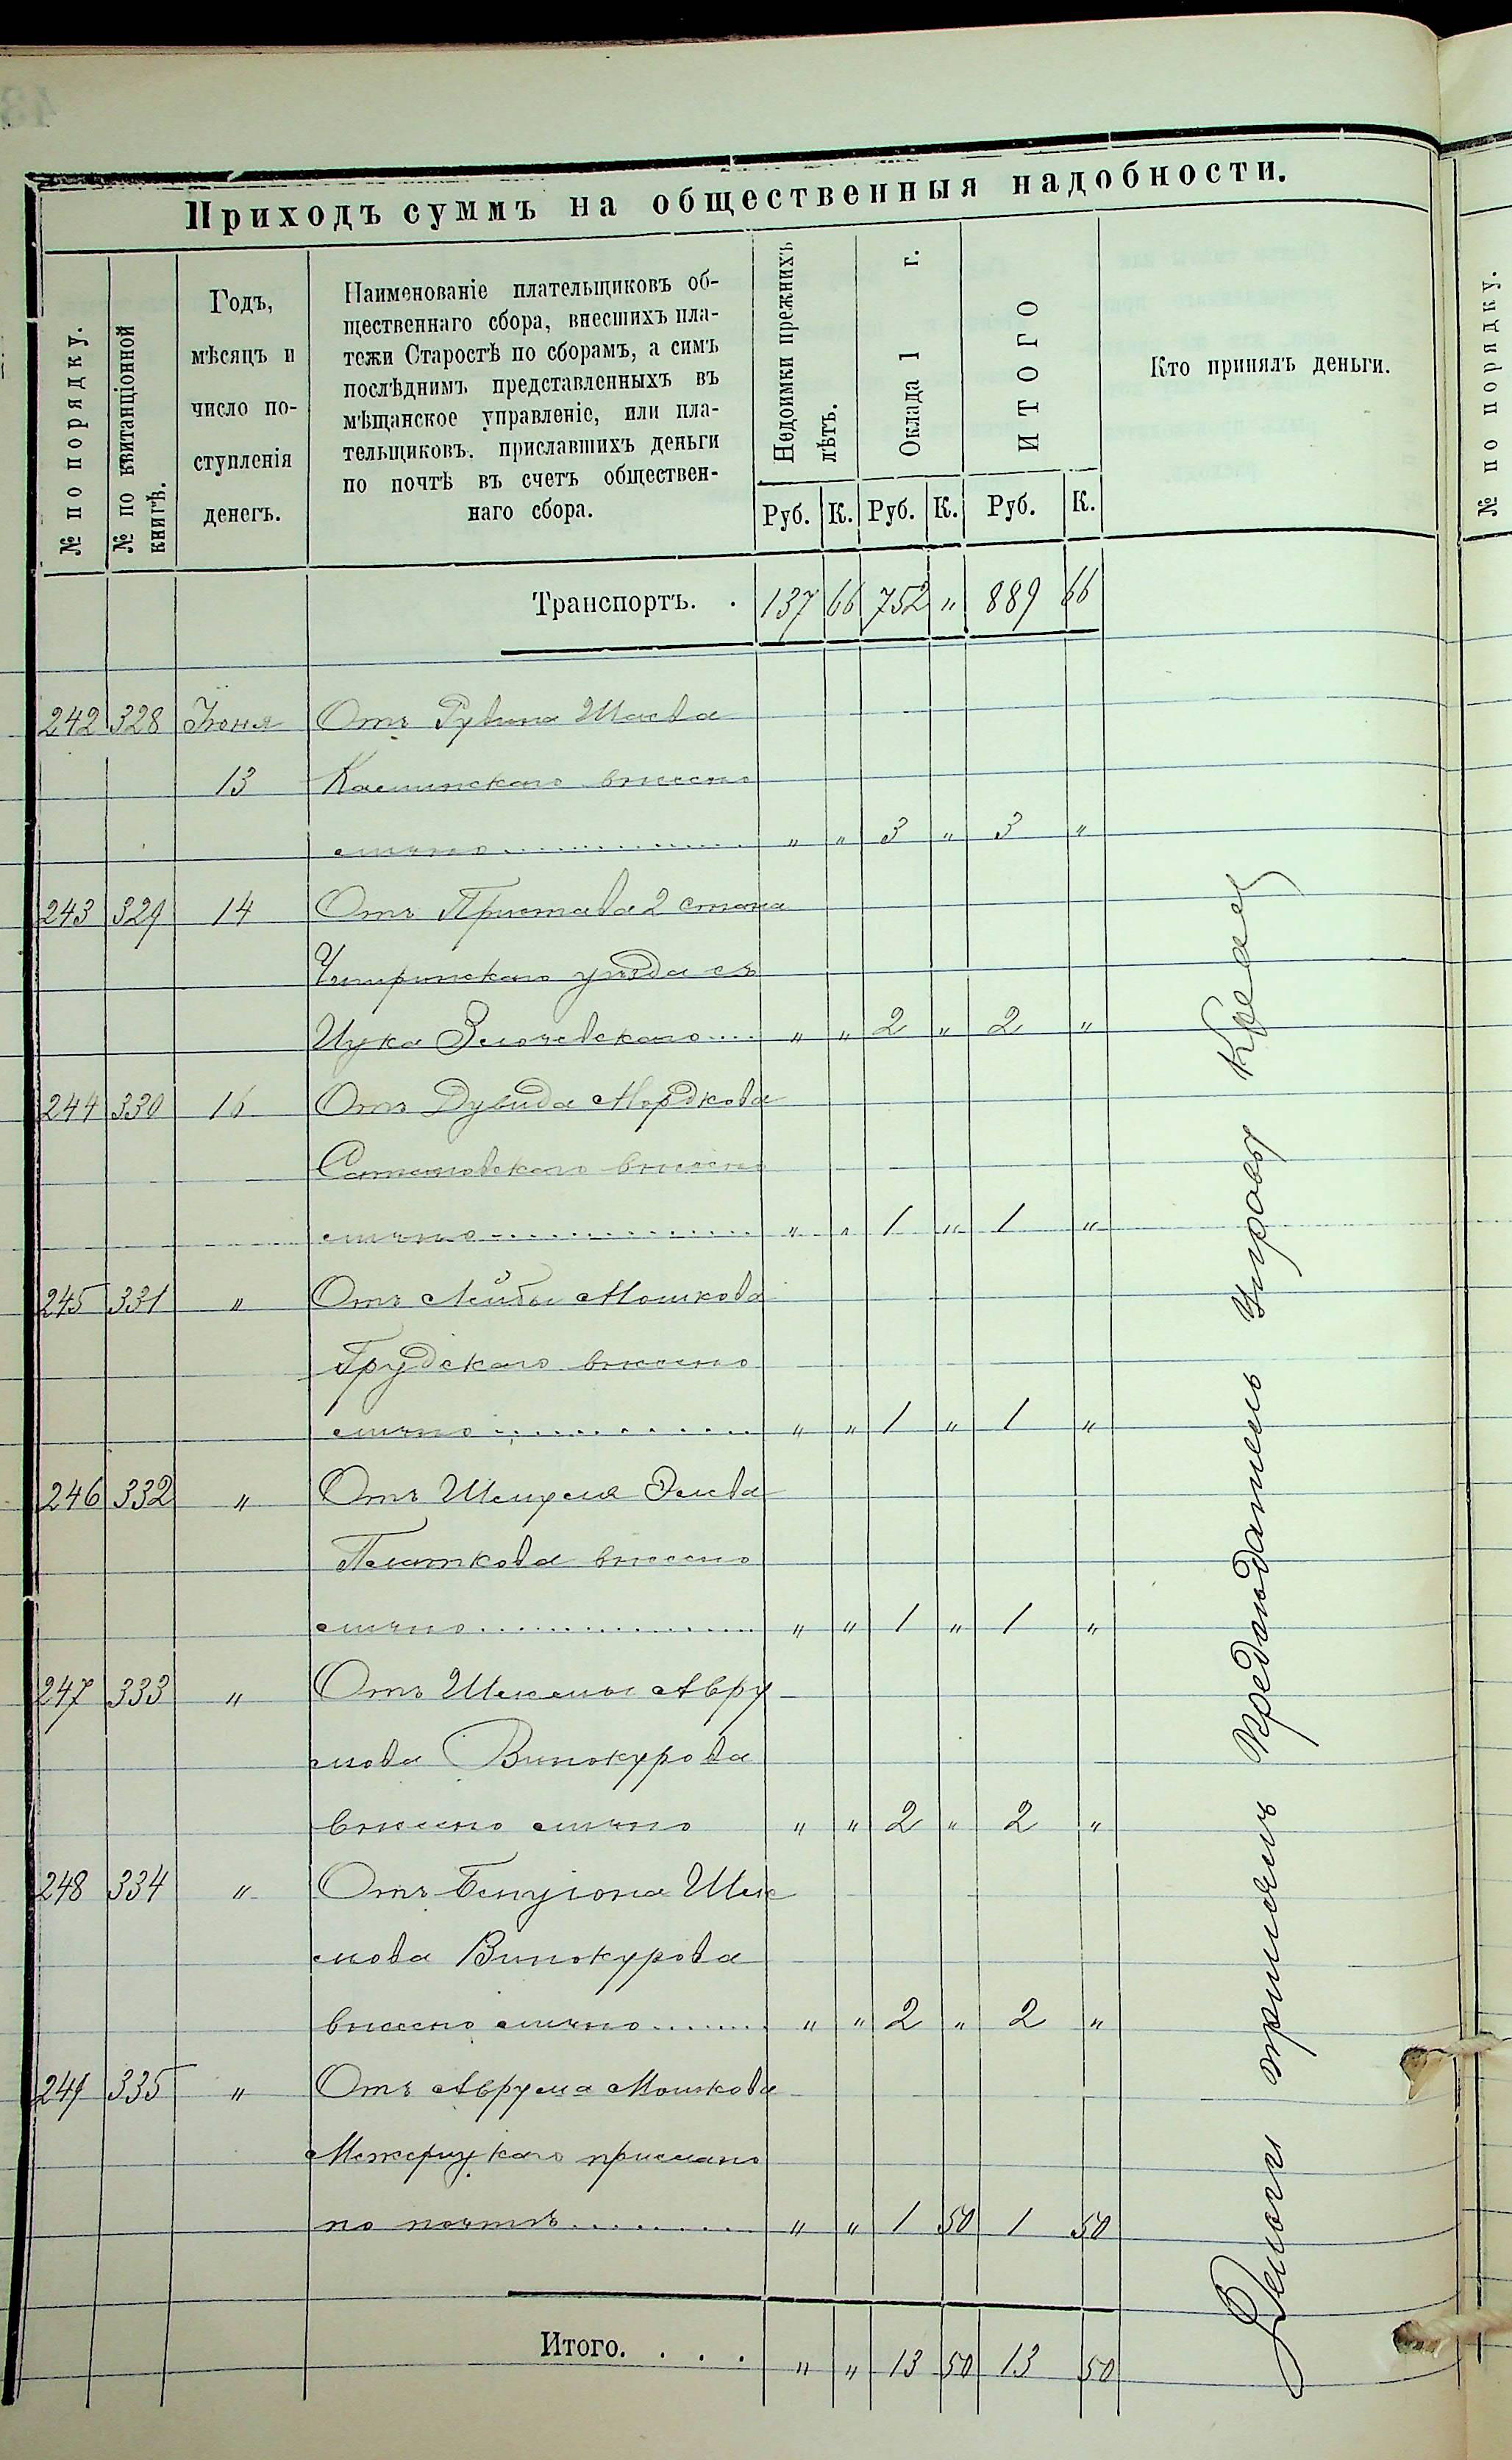 Приходъ суммъ на общественныя надобности.
№ по порядку.
№ по квитанціонной
книгѣ.
Годъ,
мѣсяцъ и
число по-
ступленія
денегъ.
Наименованіе плательщиковъ об-
щественнаго сбора, внесшихъ пла-
тежи Старостѣ по сборамъ, а симъ
послѣднимъ представленныхъ въ
мѣщанское управленіе, или пла-
тельщиковъ. приславшихъ деньги
по почтѣ въ счетъ обществен-
наго сбора.
Недоимки прежнихъ
лѣтъ.
Оклада 1 г.
ИТОГО
Кто принялъ деньги.
Руб. К. Руб. К. Руб. К.
Транспортъ. . 137 66 752 " 889 66
242 328 Іюня Отъ Рувина Шаева
13 внесено
лично " " 3 " 3 "
243 329 14 Отъ Пристава 2 стана
Чигиринскаго уѣзда съ
Ицка Злочевскаго " " 2 " 2 "
244 330 16 Отъ Дувида Мордкова
Сатановскаго внесено
лично " " 1 " 1 "
245 331 " Отъ Лейбы Мошкова
Грудскаго внесено
лично " " 1 " 1 "
246 332 " Отъ
внесено
лично " " 1 " 1 "
247 333 " Отъ Авру
мова Винокурова
внесено лично " " 2 " 2 "
248 334 " Отъ Бенціона
мова Винокурова
внесено лично " " 2 " 2 "
249 335 " Отъ Аврума Мошкова
Межерицкаго прислано
по почтѣ " " 1 50 1 50
Итого. . . . " " 13 50 13 50
Деньги принялъ Предсѣдатель Управы
№ по порядку.